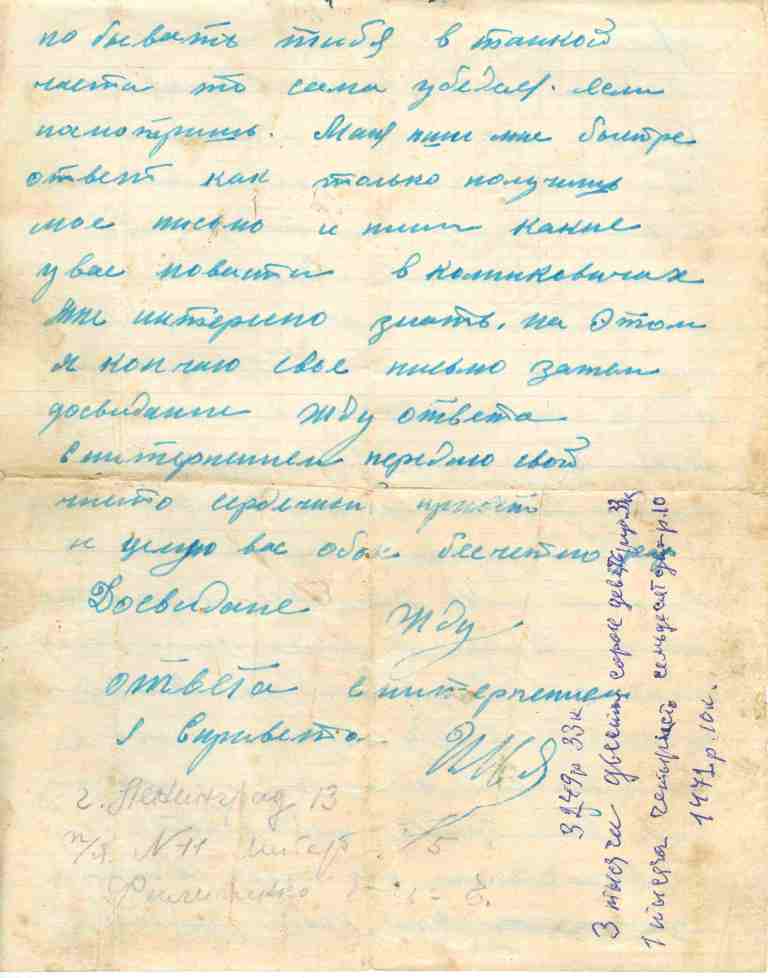 по бывать тибя в танкой
части то сама убедис. если
пасмотришь. Маня пиши мне быстре
ответ как только получишь
мое письмо и пиши какие
у вас новасти в Калинковичах
мне интересно знать. на Этом
я кончаю свое письмо затем
досвидание жду ответа
с нитерпением передаю свой
чисто сердечный привет
и целую вас обох бесчетно раз
Досвидане жду
ответа с нитерпением
г. Ленинград 13
п/я N 11 литер 5
3249р 33к
3 тысячи двести сорок девять р. 33к
1 тысяча четыреста семьдесят один р. 10
1471р. 10к.